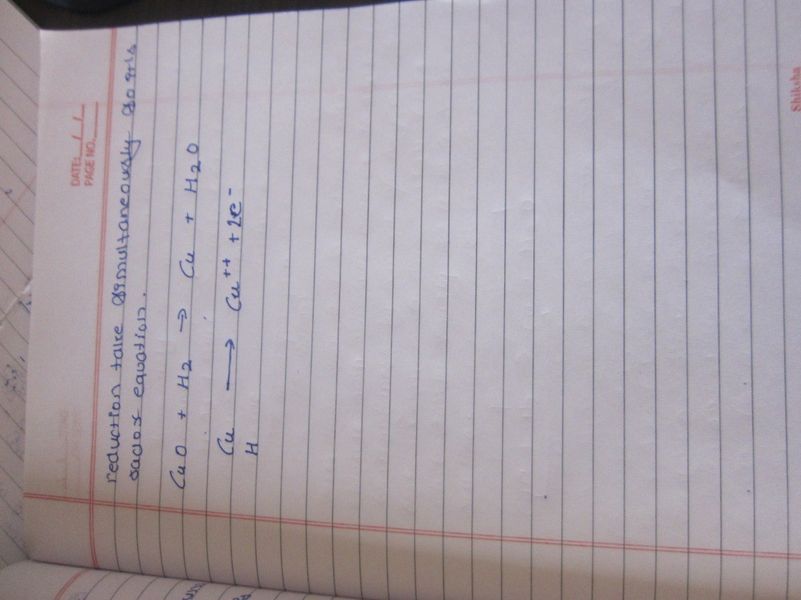 DATE: / /
PAGE NO.
reduction take simultaneously so it is
redox equation.
CuO + H2 → Cu + H2O
Cu → Cu++ + 2e-
H
Shiksha